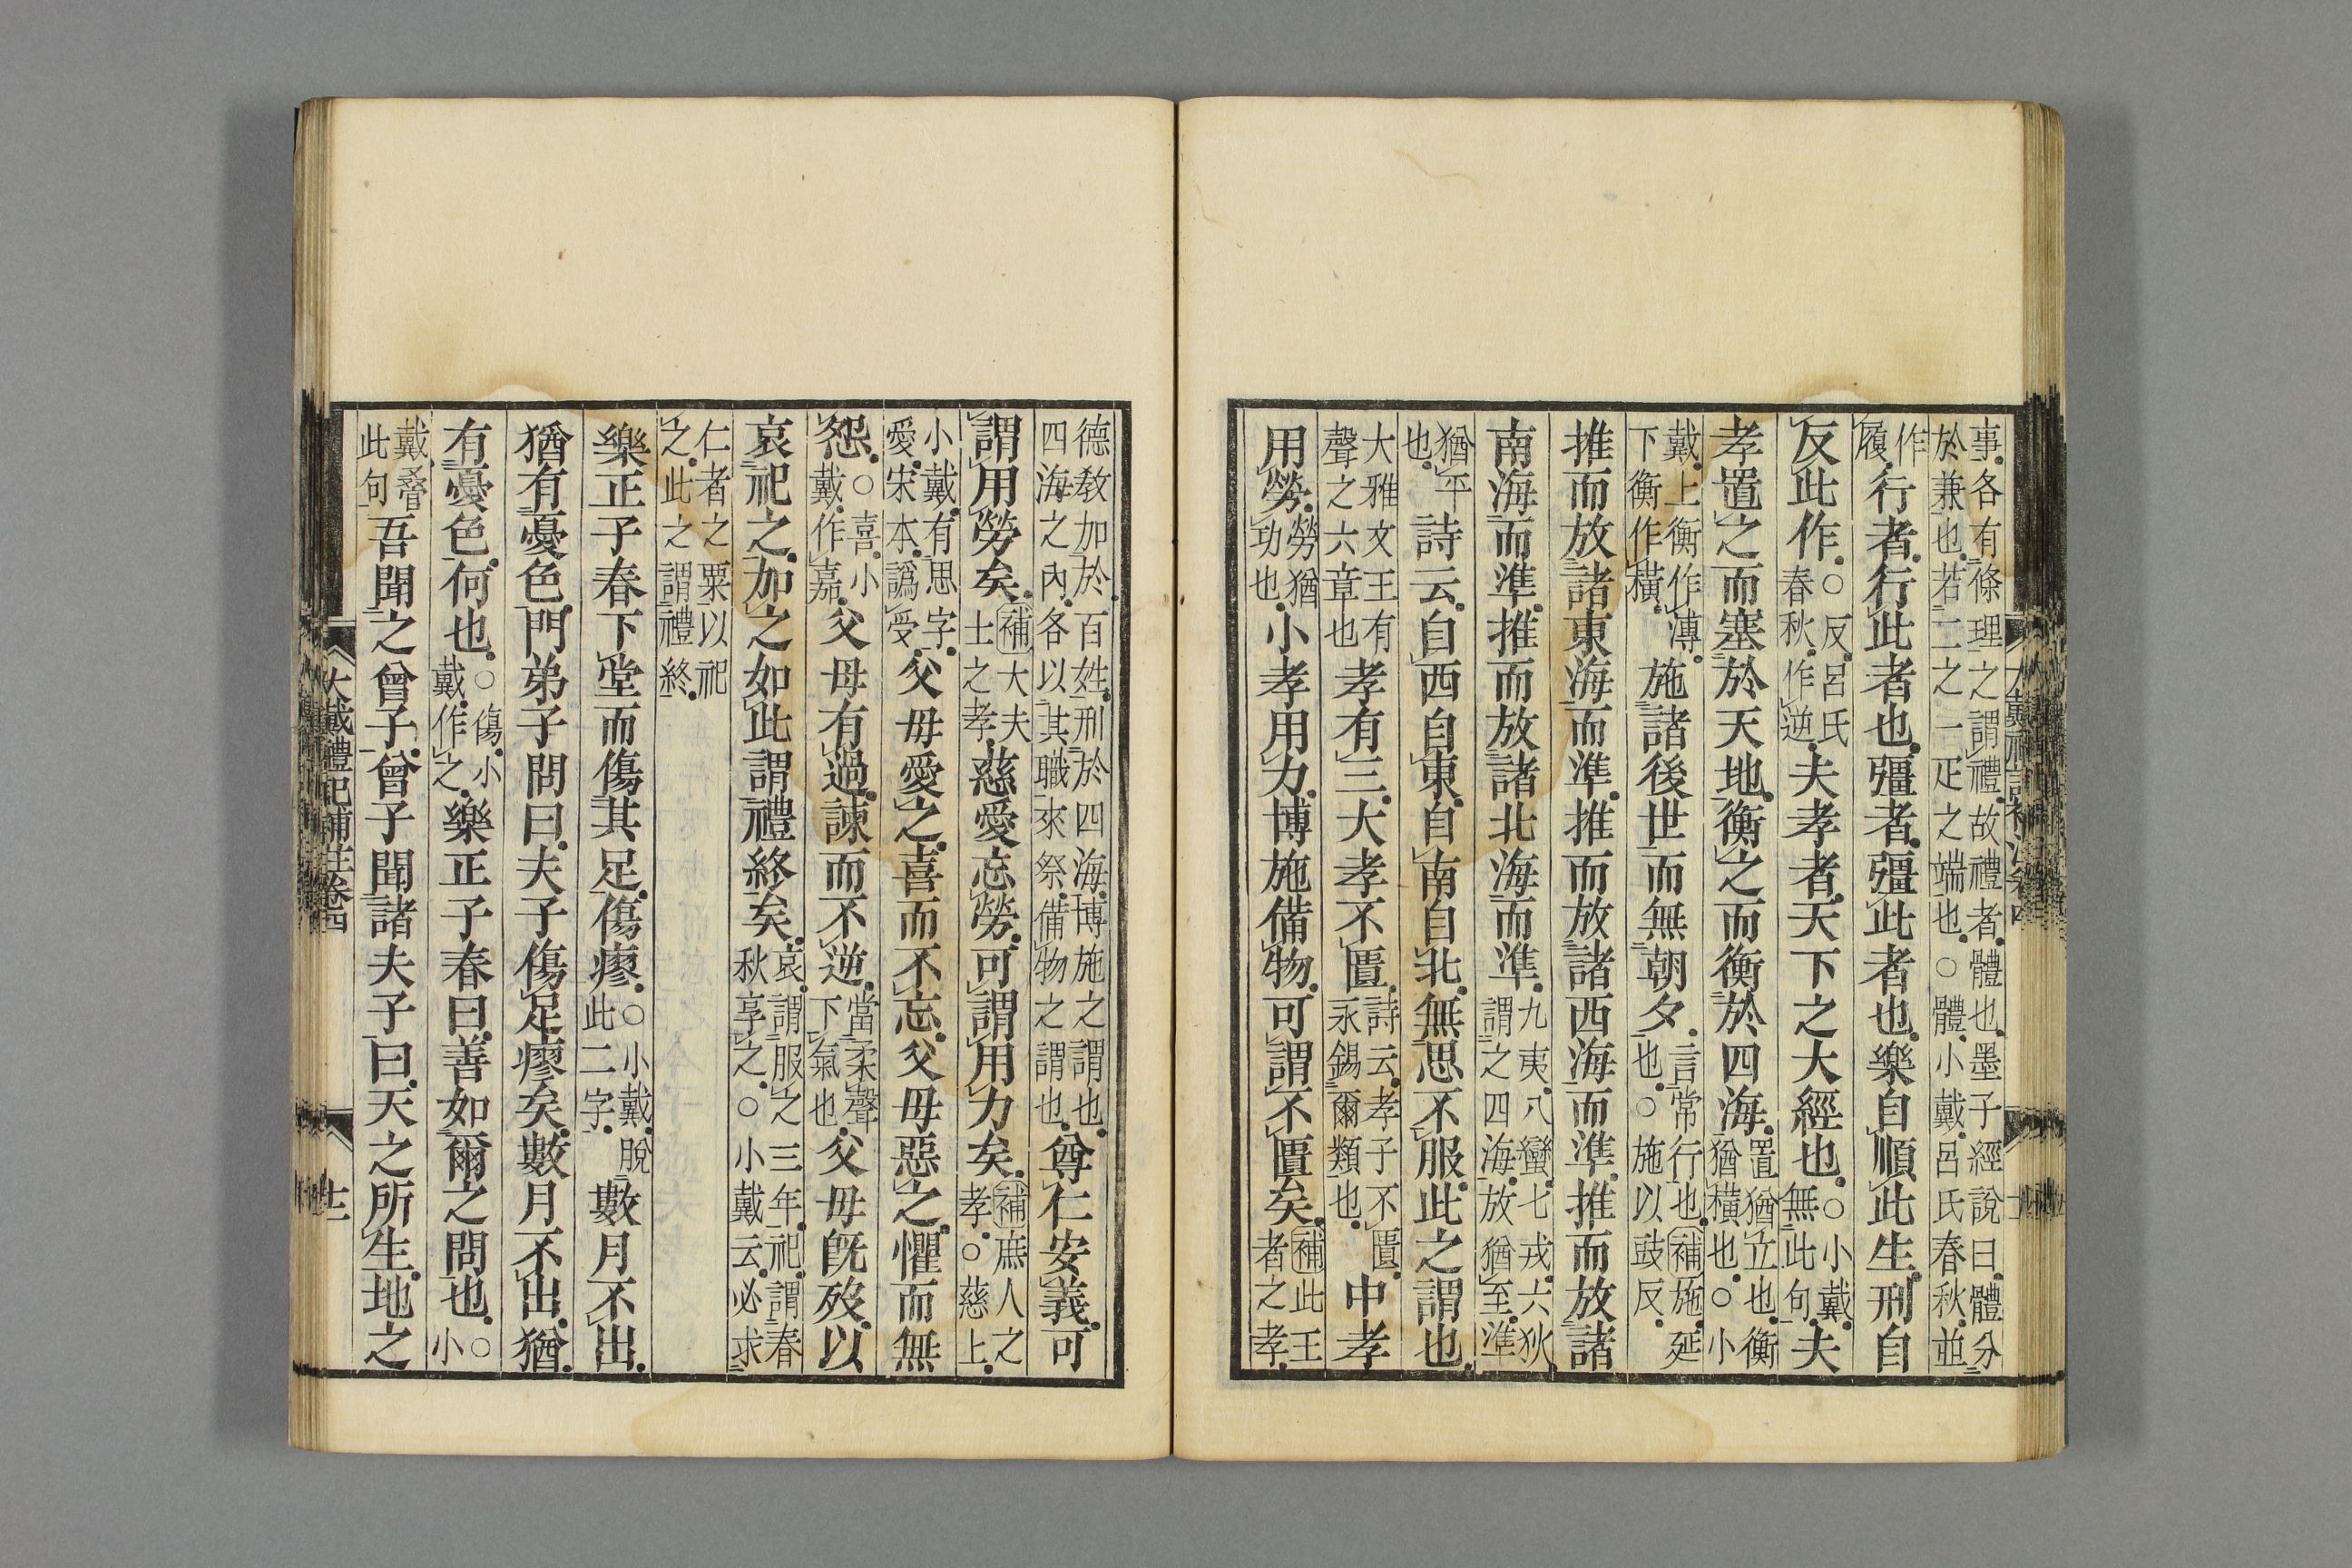 事各有條理之謂禮故禮者體也墨子經說曰體分
於兼也若二之一疋之端也○體小戴呂氏春秋並
作履行者行此者也彊者彊此者也樂自順此生刑自
反此作○反呂氏春秋作逆夫孝者天下之大經也○小戴無此句夫
孝置之而塞於天地衡之而衡於四海置猶立也衡猶橫也○小
戴上衡作溥下衡作橫施諸後世而無朝夕言常行也補施延也○施以豉反
推而放諸東海而準推而放諸西海而準推而放諸
南海而準推而放諸北海而準九夷八蠻七戎六狄謂之四海放猶至準
猶平也詩云自西自東自南自北無思不服此之謂也
大雅文王有聲之六章也孝有三大孝不匱詩云孝子不匱永錫爾類也中孝
用勞勞猶功也小孝用力博施備物可謂不匱矣補此王者之孝
德敎加於百姓刑於四海博施之謂也
四海之內各以其職來祭備物之謂也尊仁安義可
謂用勞矣補大夫士之孝慈愛忘勞可謂用力矣補庶人之孝○慈上
小戴有思字愛宋本譌受父母愛之喜而不忘父母惡之懼而無
怨○喜小戴作嘉父母有過諫而不逆當柔聲下氣也父母旣歿以
哀祀之加之如此謂禮終矣哀謂服之三年祀謂春秋享之○小戴云必求
仁者之粟以祀之此之謂禮終
樂正子春下堂而傷其足傷瘳○小戴脫此二字數月不出
猶有憂色門弟子問曰夫子傷足瘳矣數月不出猶
有憂色何也○傷小戴作之樂正子春曰善如爾之問也○小
戴疊此句吾聞之曾子曾子聞諸夫子曰天之所生地之
大戴禮記補注卷四
十二